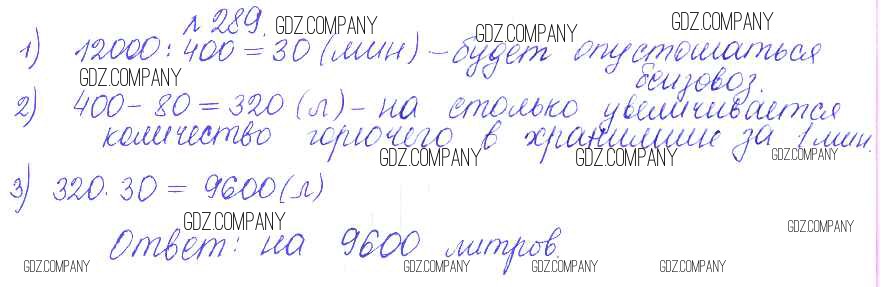 № 289. GDZ.COMPANY GDZ.COMPANY GDZ.COMPANY
1) 12000 : 400 = 30 (мин) – будет опустошаться
GDZ.COMPANY бензовоз.
2) 400 – 80 = 320 (л) – на столько увеличивается
количество горючего в хранилище за 1 мин.
GDZ.COMPANY GDZ.COMPANY GDZ.COMPANY
3) 320 · 30 = 9600 (л)
GDZ.COMPANY GDZ.COMPANY
Ответ: на 9600 литров.
GDZ.COMPANY GDZ.COMPANY GDZ.COMPANY GDZ.COMPANY